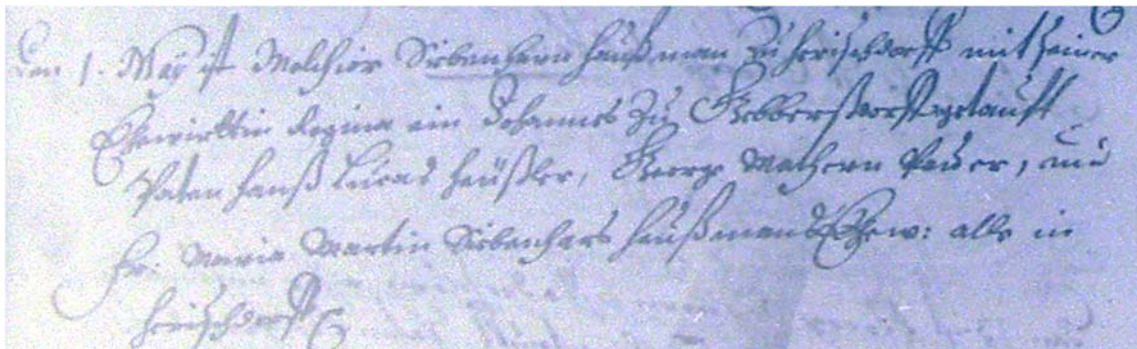 Den 1. May ist Melchior Siebenhern haußman zu Herischdorff mit seiner
Ehewirttin Regina ein Johannes zu getaufft
Paten Hanß Lucas häußler, George Mathern Pauer, und
Fr: Maria Martin Siebenhars haußmans Ehew: alle in
Herischdorff